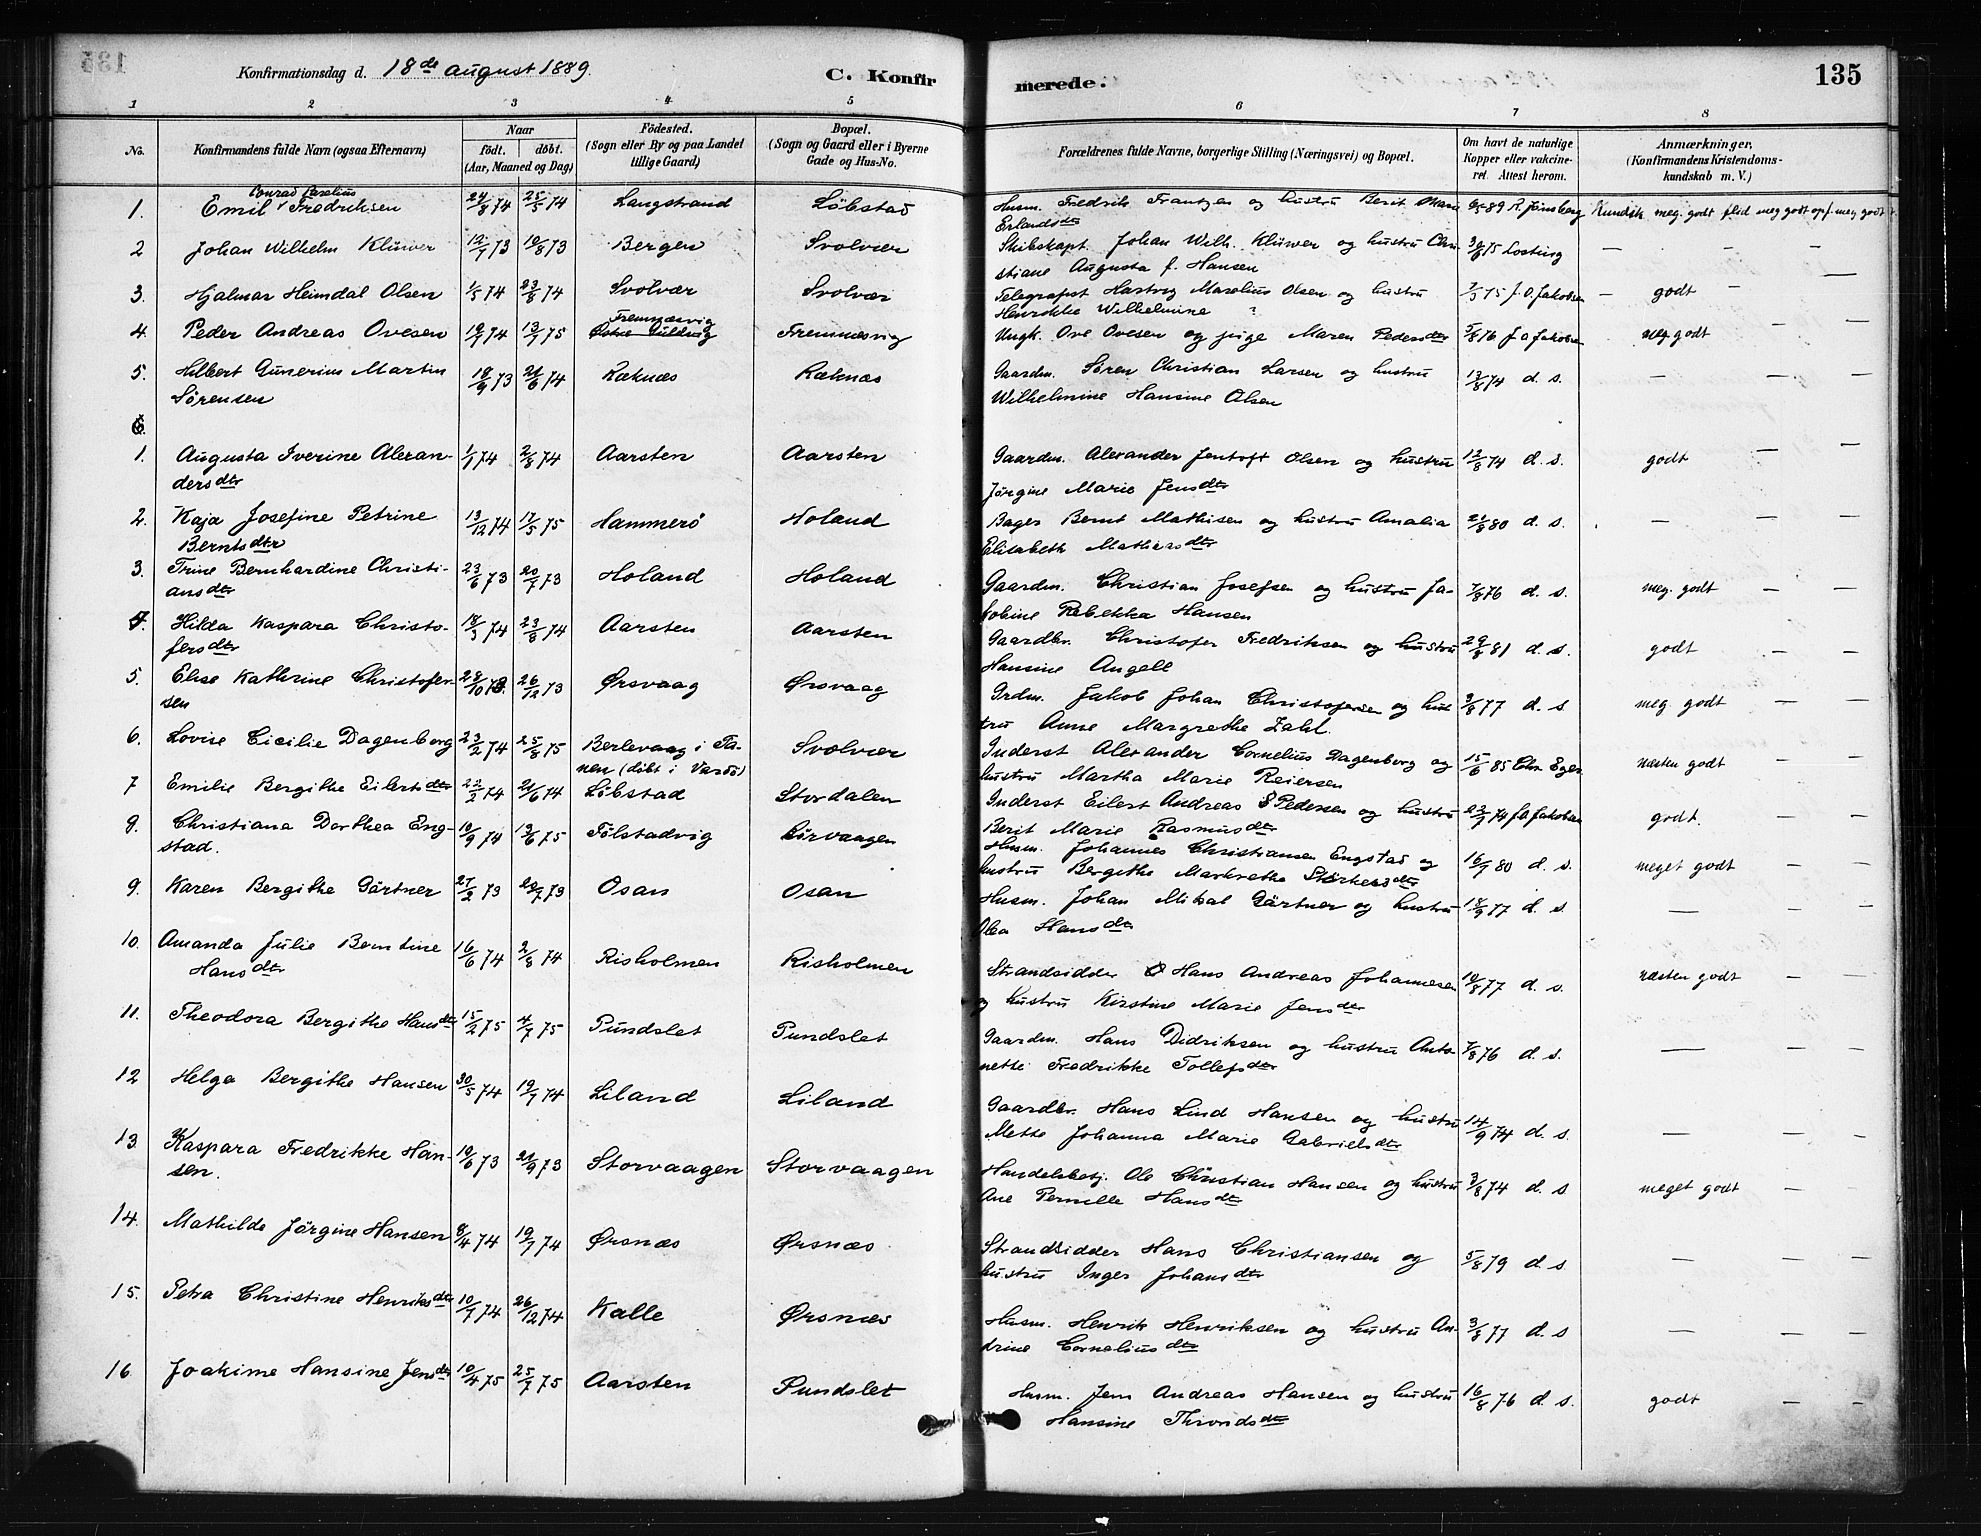 Konfirmationsdag d. 18de august 1889.
C. Konfir
merede.
135
1 2 3 4 5 6 7 8
No.
Konfirmandens fulde Navn (ogsaa Efternavn)
Naar
födt. döbt.
(Aar, Maaned og Dag)
Födested.
(Sogn eller By og paa Landet
tillige Gaard)
Bopæl.
(Sogn og Gaard eller i Byerne
Gade og Hus-No.
Forældrenes fulde Navne, borgerlige Stilling (Næringsvei) og Bopæl.
Om havt de naturlige
Kopper eller vakcine-
ret. Attest herom.
Anmærkninger,
(Konfirmandens Kristendoms-
kundskab m. V.)
1. Emil Conrad Fredriksen 24/8 74 25/5 74 Langstrand Löbstad Husm. Fredrik Frantzen og hustru Berit Erlandsdtr Kundsk. meg. godt flid meg godt opf. meg godt
2 Johan Wilhelm Klüwer 12/7 73 10/8 73 Bergen Svolvær Skibskapt. Johan Wilh. Klüwer og hustru Chri-
stiane Augusta f. Hansen — — —
3. Hjalmar Heimdal Olsen 1/5 74 23/8 74 Svolvær Svolvær Telegrafist Hartvig Maselius Olsen og hustru
Henrikke Wilhelmine ? J. O. Jakobsen — godt — —
4. Peder Andreas Ovesen 19/7 74 13/7 75 Fremnæsvig Fremnæsvig Ungk. Ove Ovesen og pige Maren Pedersdtr 5/8 76 J O Jakobsen meg godt — —
5. Hilbert Gunerius Martin
Sörensen 18/9 73 21/6 74 Kæknæs Kæknæs Gaardm. Sören Christian Larsen og hustru
Wilhelmine Hansine Olsen 13/8 74 d. s. — — —
6.
1. Augusta Iverine Alexan-
dersdtr 1/1 74 2/8 74 Aarsten Aarsten Gaardm. Alexander Jentoft Olsen og hustru
Jörgine Marie Jensdtr 12/8 74 d. s. godt — —
2. Kaja Josefine Petrine
Berntsdtr 13/12 74 17/5 75 Hammerö Holand Bager Bernt Mathisen og hustru Amalia
Elisabeth Mathiasdtr 21/8 80 d. s. — — —
3. Trine Bernhardine Christi-
ansdtr 23/6 73 20/7 73 Holand Holand Gaardm. Christian Josefsen og hustru Ja-
kobine Rebekka Hansen 7/8 76 d. s. meg. godt — —
4. Hilda Kaspara Christo-
fersdtr 18/3 74 23/8 74 Aarsten Aarsten Gaardbr. Christofer Fredriksen og hustru
Hansine Angell 29/8 81 d. s. godt — —
5. Elise Kathrine Christofer-
sen 23/10 73 26/12 73 Ørsvaag Ørsvaag Grdm. Jakob Johan Christofersen og hus-
tru Anne Margrethe Zahl. 9/8 77 d. s meg godt — —
6. Lovise Cicilie Dagenborg 23/2 74 25/8 75 Berlevaag i Ta-
nen (döbt i Vardö) Svolvær Inderst Alexander Cornelius Dagenborg og
hustru Martha Marie Reiersen 15/6 85 Chr. Eger næsten godt — —
7 Emilie Bergithe Eilertsdtr 22/2 74 21/6 74 Löbstad Stordalen Inderst Eilert Andreas Pedersen og hustru
Berit Marie Rasmusdtr 23/7 74 J O Jakobsen godt. — —
8. Christiana Dorthea Eng-
stad. 10/9 74 13/6 75 Tölstadvig Körvaagen Husm. Johannes Christiansen Engstad og
hustru Bergithe Markrethe Störkersdtr 16/7 80 d. s. meget godt — —
9. Karen Bergithe Gärtner 27/2 73 20/7 73 Osan Osan Husm. Johan Mikal Gärtner og hustru
Olea Hansdtr 18/9 77 d. s. — — —
10. Amanda Julie Berntine
Hansdtr 16/6 74 2/8 74 Risholmen Risholmen Strandsidder Hans Andreas Johannesen
og hustru Kirstine Marie Jensdtr 10/8 77 d. s. næsten godt — —
11. Theodora Bergithe Hansdtr 15/2 75 4/7 75 Pundslet Pundslet Gaardm. Hans Didriksen og hustru Anto-
nette Fredrikke Tollefsdtr 7/8 76 d. s. — — —
12 Helga Bergithe Hansen 30/5 74 19/7 74 Liland Liland Gaardbr. Hans Lind Hansen og hustru
Mette Johanna Marie Gabrielsdtr 14/9 74 d. s. — — —
13. Kaspara Fredrikke Han-
sen. 19/6 73 21/9 73 Storvaagen Storvaagen Handelsbetj. Ole Christian Hansen og hustru
Ane Pernille Hansdtr 3/8 74 d. s meget godt — —
14. Mathilde Jörgine Hansen 8/4 74 19/7 74 Ørsnæs Ørsnæs Strandsidder Hans Christiansen og
hustru Inger Johansdtr 5/8 79 d. s — — —
15. Petra Christine Henriksdtr 10/7 74 26/12 74 Kalle Ørsnæs Husm. Henrik Henriksen og hustru An-
drine Corneliusdtr 3/8 77 d. s — — —
16 Joakime Hansine Jensdtr 10/4 75 25/7 75 Aarsten Pundslet Husm. Jens Andreas Hansen og hustru
Hansine Throndsdtr 16/8 76 d. s. godt — —